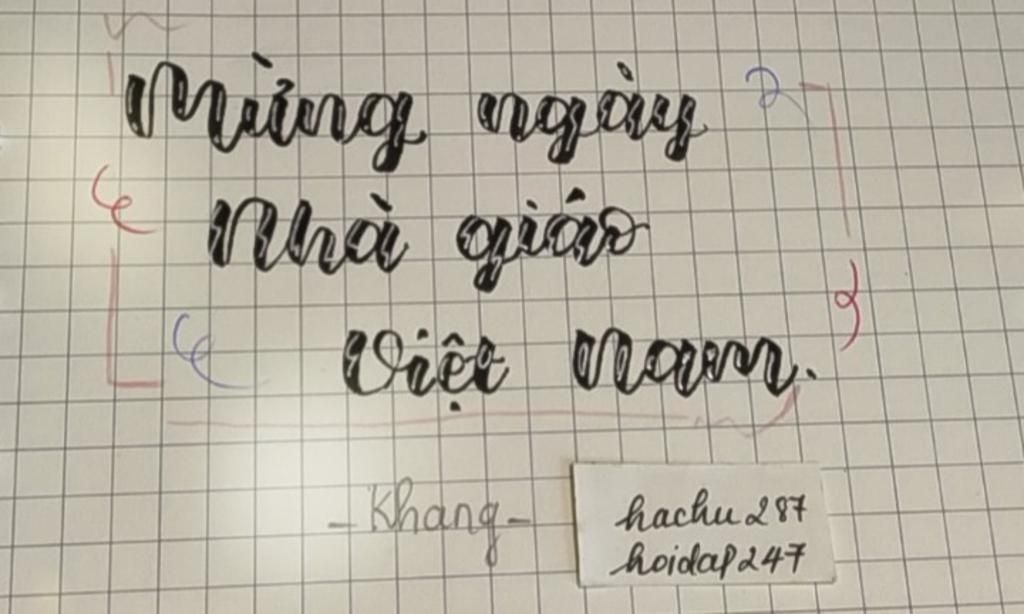 Mừng ngày
Nhà giáo
Việt Nam.
- Khang -
hachu287
hoidap247